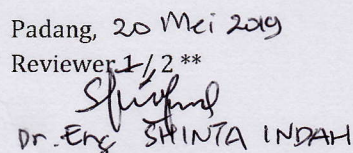 Padang, 20 Mei 2019
Reviewer 1/2 **
Dr. Eng SHINTA INDAH